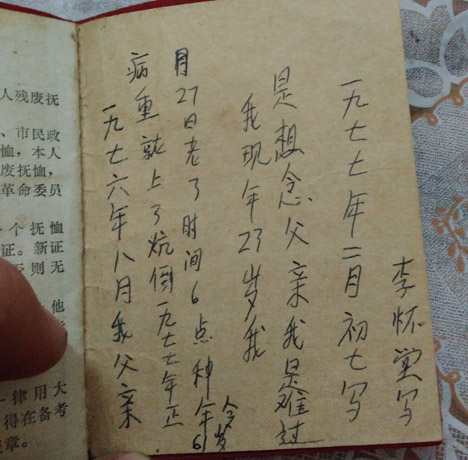 人残废抚
、市民政
恤,本人
废抚恤,
革命委员
个抚恤
证。新证
则无
他
律用大
得在备考
章。
一九七六年八月我父亲
病重就上了炕倒一九七七年正
月27日老了时间6点种今年61岁
我现年23岁我
是想念父亲我是难过
一九七七年二月初七写
李怀堂写